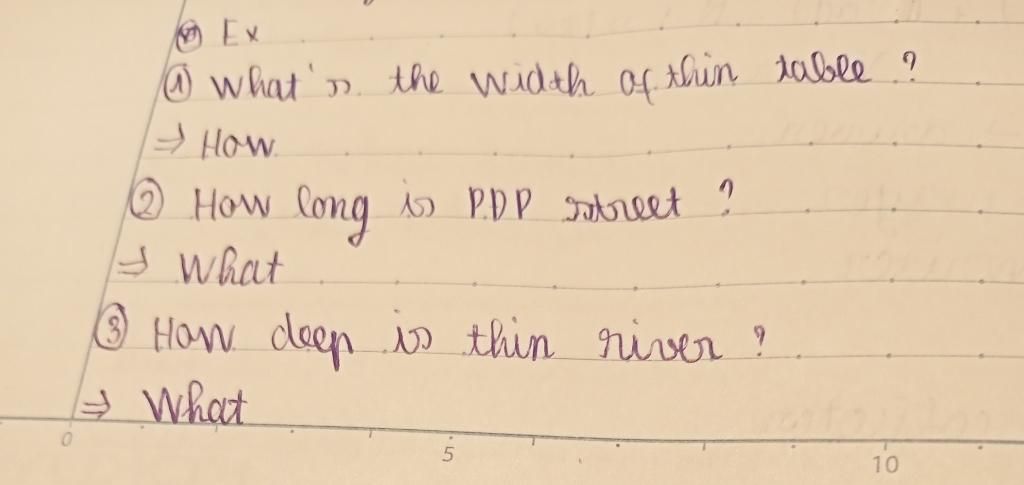 ⊛ Ex
① What's the width of this table ?
⇒ How
② How long is PDP street ?
⇒ What
③ How deep is this river ?
⇒ What
0 5 10